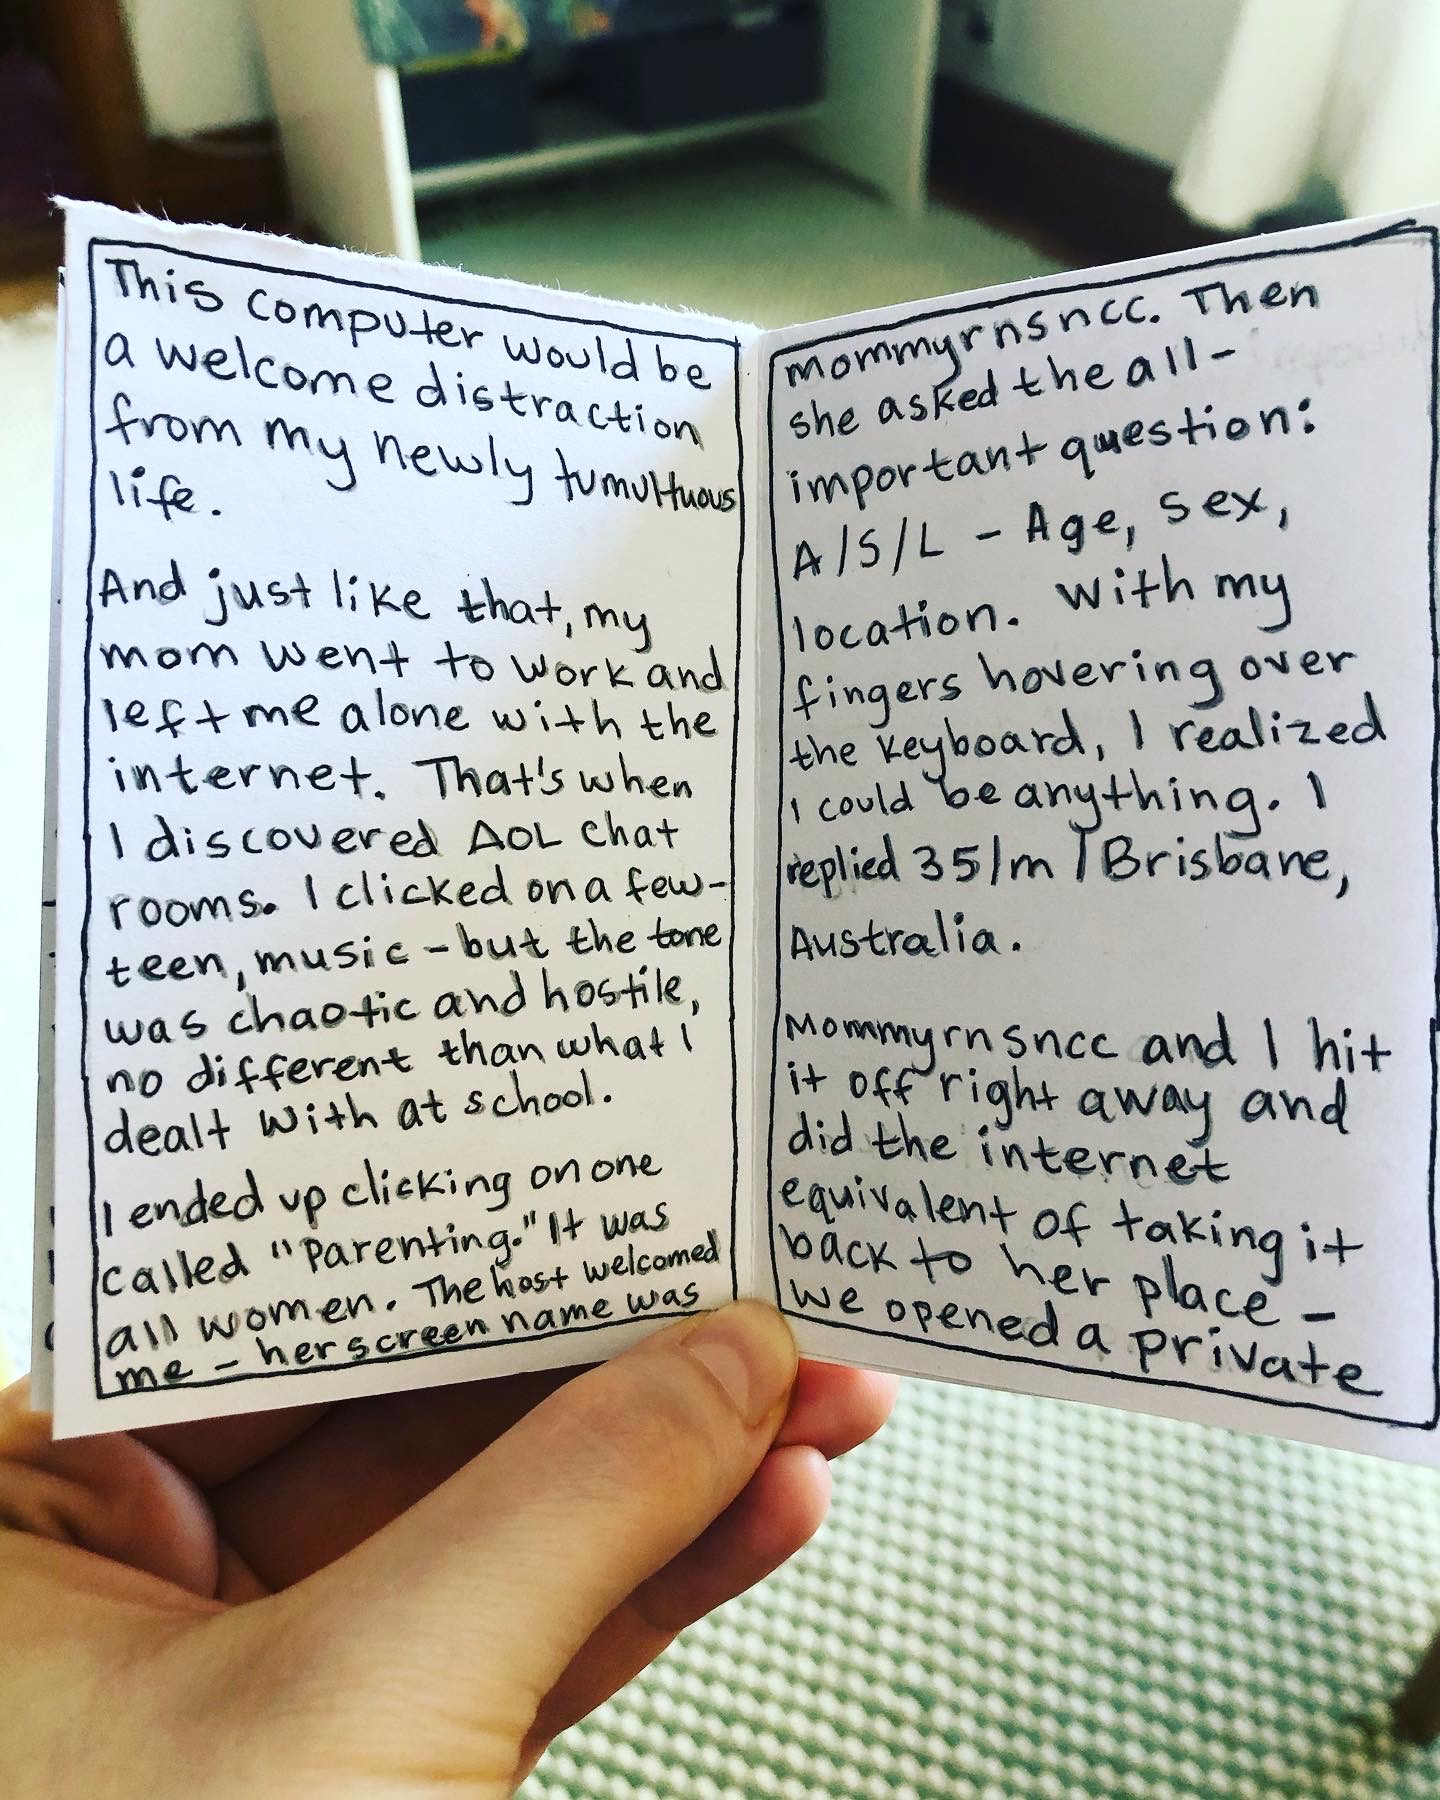 This computer would be
a welcome distraction
from my newly tumultuous
life.
And just like that, my
mom went to work and
left me alone with the
internet. That's when
I discovered AOL chat
rooms. I clicked on a few-
teen, music - but the tone
was chaotic and hostile,
no different than what I
dealt with at school.
I ended up clicking on one
called "Parenting." It was
all women. The host welcomed
me - her screen name was
mommyrnsncc. Then
she asked the all-
important question:
A/S/L - Age, sex,
location. With my
fingers hovering over
the keyboard, I realized
I could be anything. I
replied 35/m/Brisbane,
Australia.
Mommyrnsncc and I hit
it off right away and
did the internet
equivalent of taking it
back to her place -
we opened a private